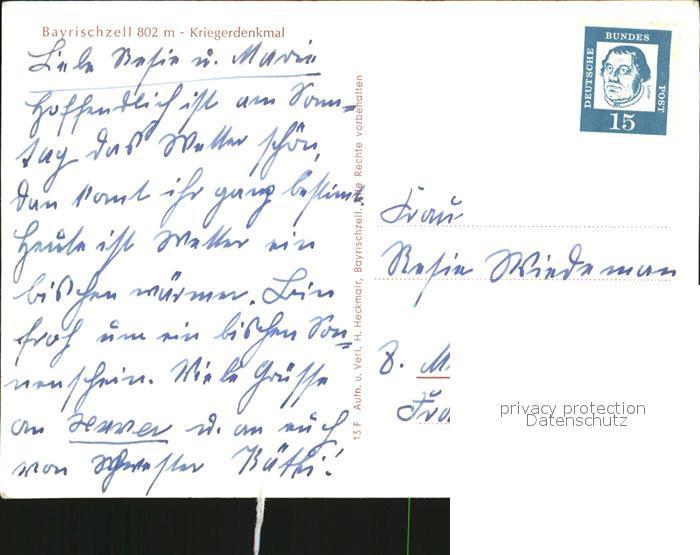 Bayrischzell 802 m - Kriegerdenkmal
Liebe Resie u. Marie
Hoffendlich ist am Sonn=
tag das Wetter schön,
dan komt ihr ganz bestimt.
Heute ist Wetter ein
bischen wärmer. Bin
froh um ein bischen Son=
nenschein. Viele Grüsse
an u. an euch
von Schwester Käthi!
13 F Aufn. u. Verl. H. Heckmair, Bayrischzell. Alle Rechte vorbehalten
DEUTSCHE BUNDES POST
15
Frau
Resie Wiedeman
8. M
Fra
privacy protection
Datenschutz